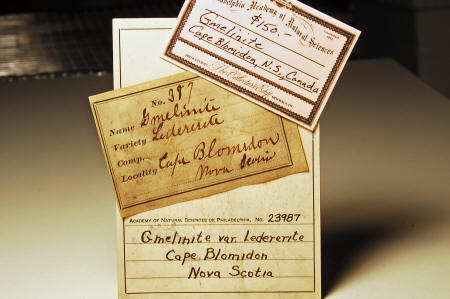 Philadelphia Academy of Natural Sciences
$150.-
Gmelinite
Cape Blomidon, N.S., Canada
No. 387
Name Gmelinite
Variety Ledererite
Comp.
Locality Cape Blomidon
Nova Scotia
ACADEMY OF NATURAL SCIENCES OF PHILADELPHIA, No. 23987
Gmelinite var. Ledererite
Cape Blomidon
Nova Scotia